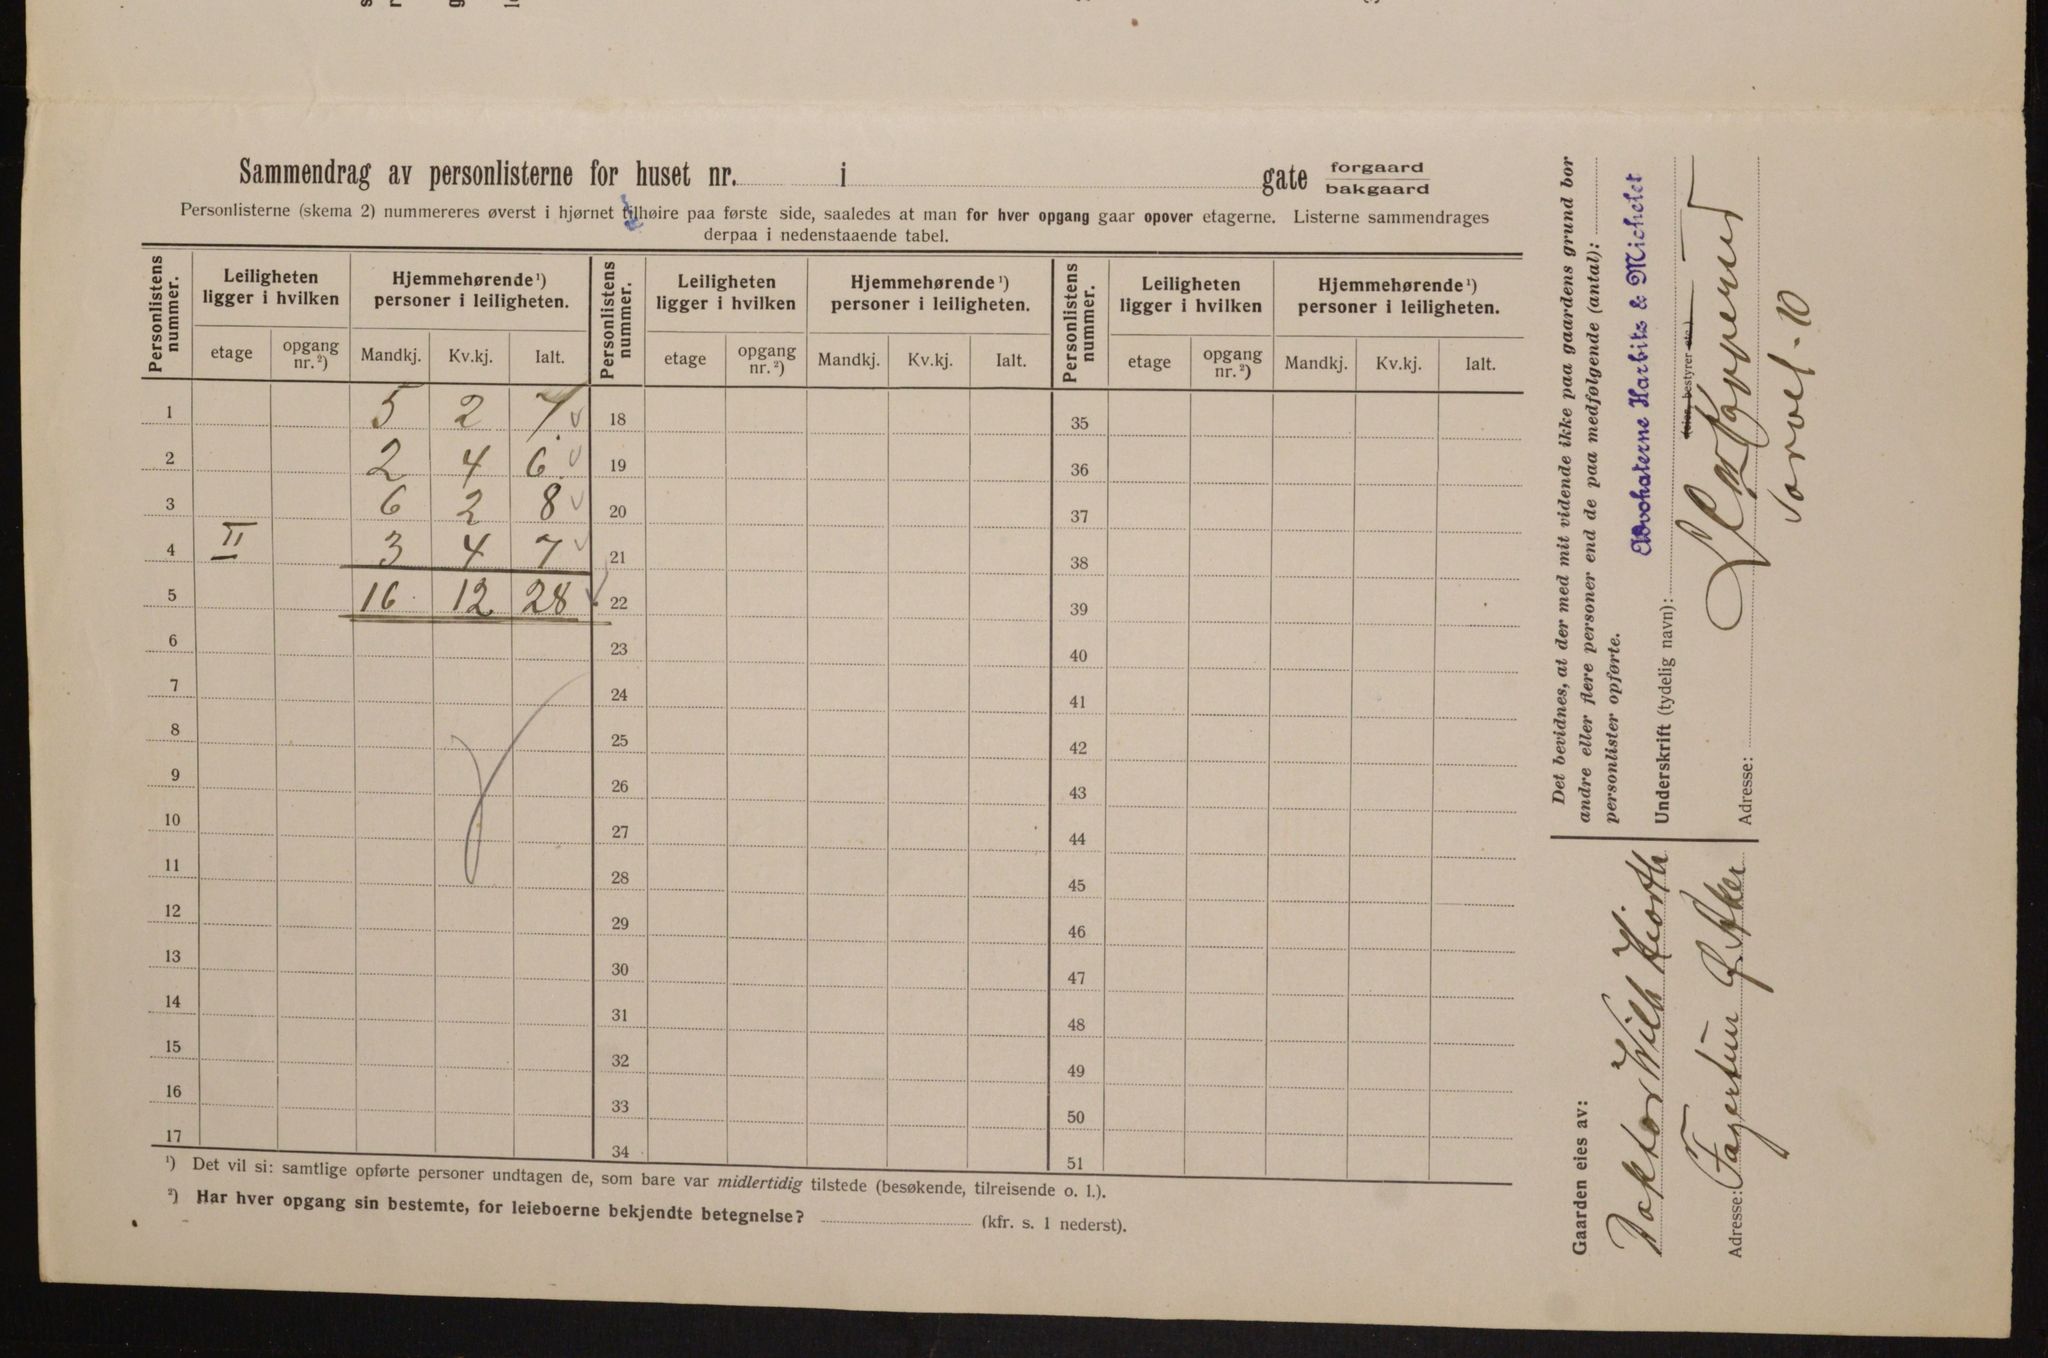 Sammendrag av personlisterne for huset nr. i gate forgaard
bakgaard
Personlisterne (skema 2) nummereres øverst i hjørnet tilhøire paa første side, saaledes at man for hver opgang gaar opover etagerne. Listerne sammendrages
derpaa i nedenstaaende tabel.
Personlistens nummer. Leiligheten ligger i hvilken Hjemmehørende ¹) personer i leiligheten. Personlistens nummer. Leiligheten ligger i hvilken Hjemmehørende ¹) personer i leiligheten. Personlistens nummer. Leiligheten ligger i hvilken Hjemmehørende ¹) personer i leiligheten.
etage opgang nr. ²) Mandkj. Kv.kj. Ialt. etage opgang nr. ²) Mandkj. Kv.kj. Ialt. etage opgang nr. ²) Mandkj. Kv.kj. Ialt.
1 5 2 7 18 35
2 2 4 6 19 36
3 6 2 8 20 37
4 II 3 4 7 21 38
5 16 12 28 22 39
6 23 40
7 24 41
8 25 42
9 26 43
10 27 44
11 28 45
12 29 46
13 30 47
14 31 48
15 32 49
16 33 50
17 34 51
¹) Det vil si: samtlige opførte personer undtagen de, som bare var midlertidig tilstede (besøkende, tilreisende o. l.).
²) Har hver opgang sin bestemte, for leieboerne bekjendte betegnelse? (kfr. s. 1 nederst).
Det bevidnes, at der med mit vidende ikke paa gaardens grund bor
andre eller flere personer end de paa medfølgende (antal):
personlister opførte.
Advokaterne Harbitz & Michelet
Underskrift (tydelig navn):
(eier, bestyrer etc.)
Adresse:
Gaarden eies av:
Doktor Wilh Hiorth
Adresse: Fagertun V. Aker